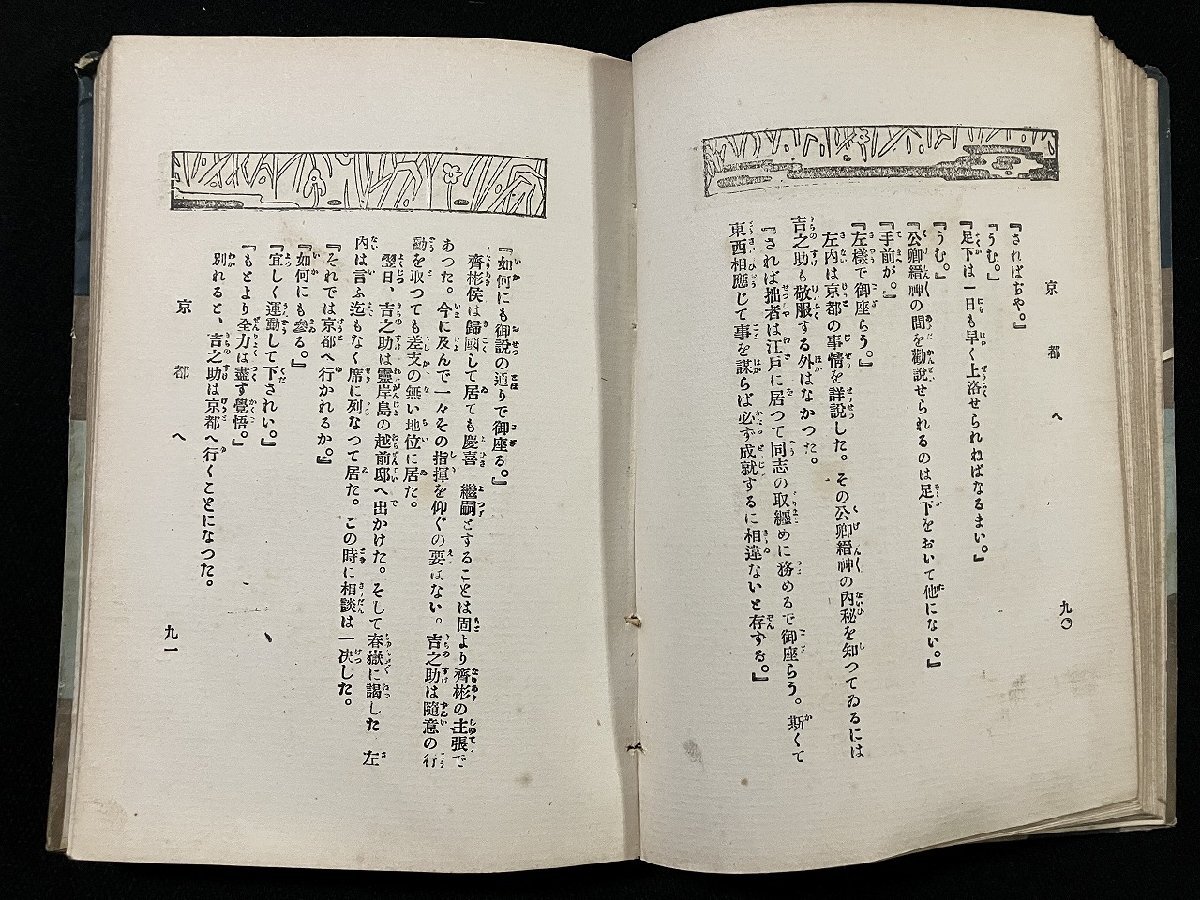 京都へ
九〇
『さればぢや。』
『うむ。』
『足下は一日も早く上洛せられねばなるまい。』
『うむ。』
『公卿縉紳の間を勸說せられるのは足下をおいて他にない。』
『手前が。』
『左樣で御座らう。』
左內は京都の事情を詳說した。その公卿縉紳の內秘を知つてゐるには
吉之助も敬服する外はなかつた。
『されば拙者は江戶に居つて同志の取纏めに務めるで御座らう。斯くて
東西相應じて事を謀らば必ず成就するに相違ないと存する。』
『如何にも御說の通りで御座る。』
齊彬侯は歸國して居ても慶喜 繼嗣とすることは固より齊彬の主張で
あつた。今に及んで一々その指揮を仰ぐの要はない。吉之助は隨意の行
動を取つても差支の無い地位に居た。
翌日、吉之助は靈岸島の越前邸へ出かけた。そして春嶽に謁した 左
內は言ふ迄もなく席に列なつて居た。この時に相談は一決した。
『それでは京都へ行かれるか。』
『如何にも參る。』
『宜しく運動して下されい。』
『もとより全力は盡す覺悟。』
別れると、吉之助は京都へ行くことになつた。
京都へ
九一